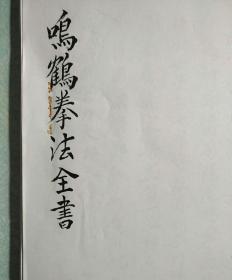 鳴鶴拳法全書